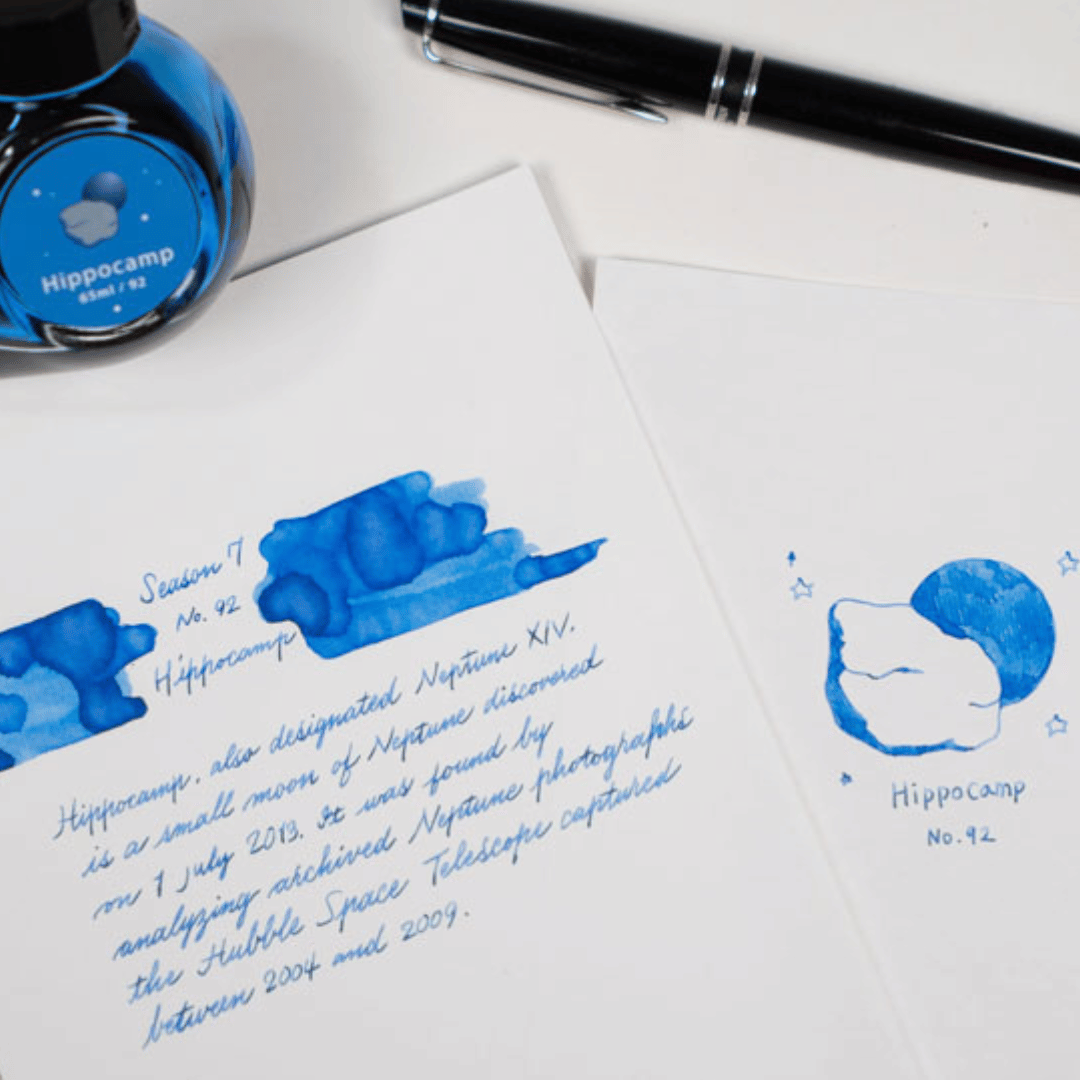 Hippocamp
65ml / 92
Season 7
No. 92
Hippocamp
Hippocamp, also designated Neptune XIV.
is a small moon of Neptune discovered
on 1 July 2013. It was found by
analyzing archived Neptune photographs
the Hubble Space Telescope captured
between 2004 and 2009.
Hippocamp
No. 92